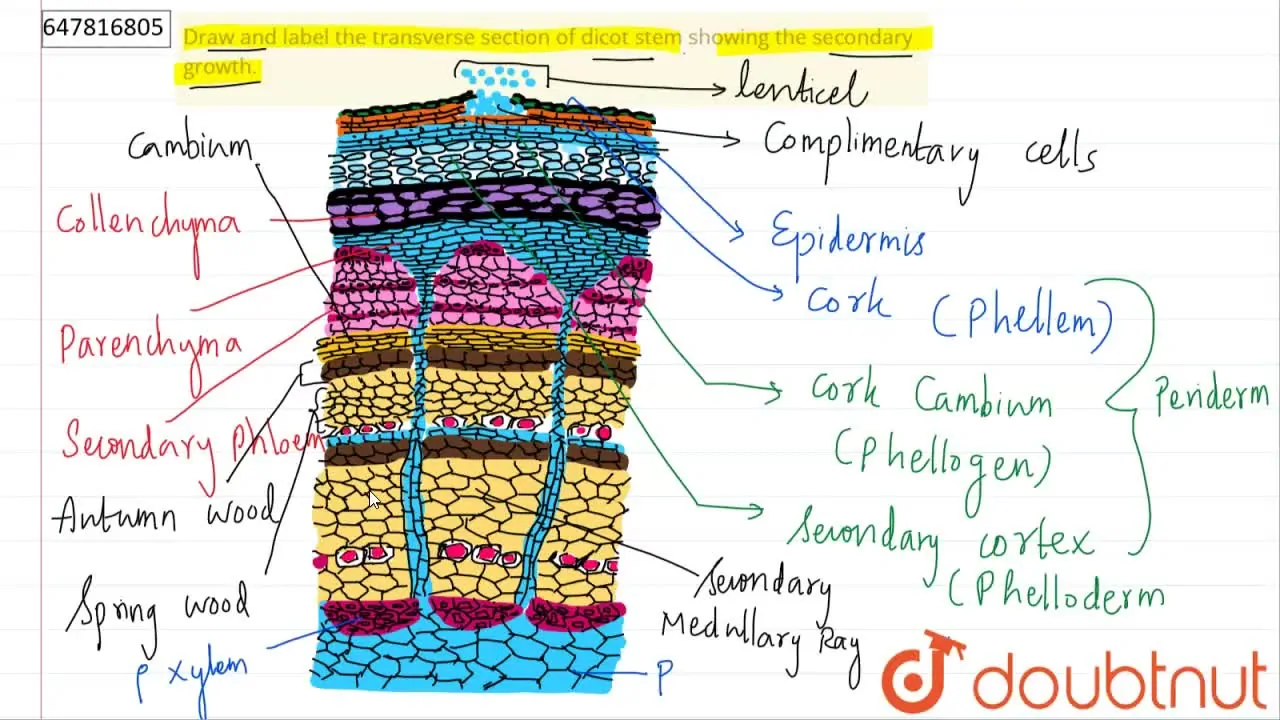 647816805
Draw and label the transverse section of dicot stem showing the secondary
growth.
lenticel
Complimentary cells
Cambium
Collenchyma
Epidermis
Cork (Phellem)
Parenchyma
Cork Cambium
(Phellogen)
Periderm
Secondary Phloem
Autumn wood
Secondary cortex
(Phelloderm
Spring wood
Secondary
Medullary Ray
P xylem
P
doubtnut